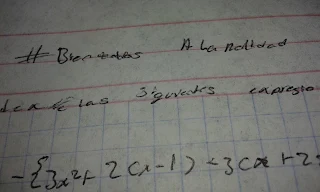 # Bienvenidos A La Realidad
las Siguientes expresio
-{3x²+2(x-1)-3(x+2